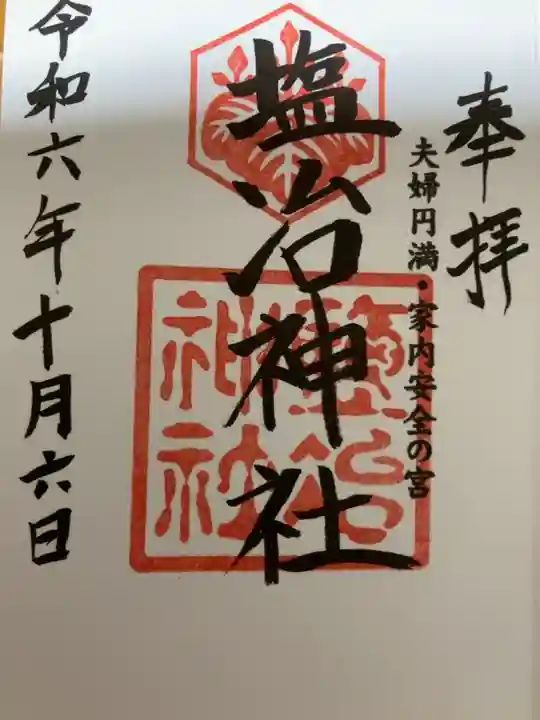 奉拝
夫婦円満・家内安全の宮
塩冶神社
鹽冶
神社
令和六年十月六日